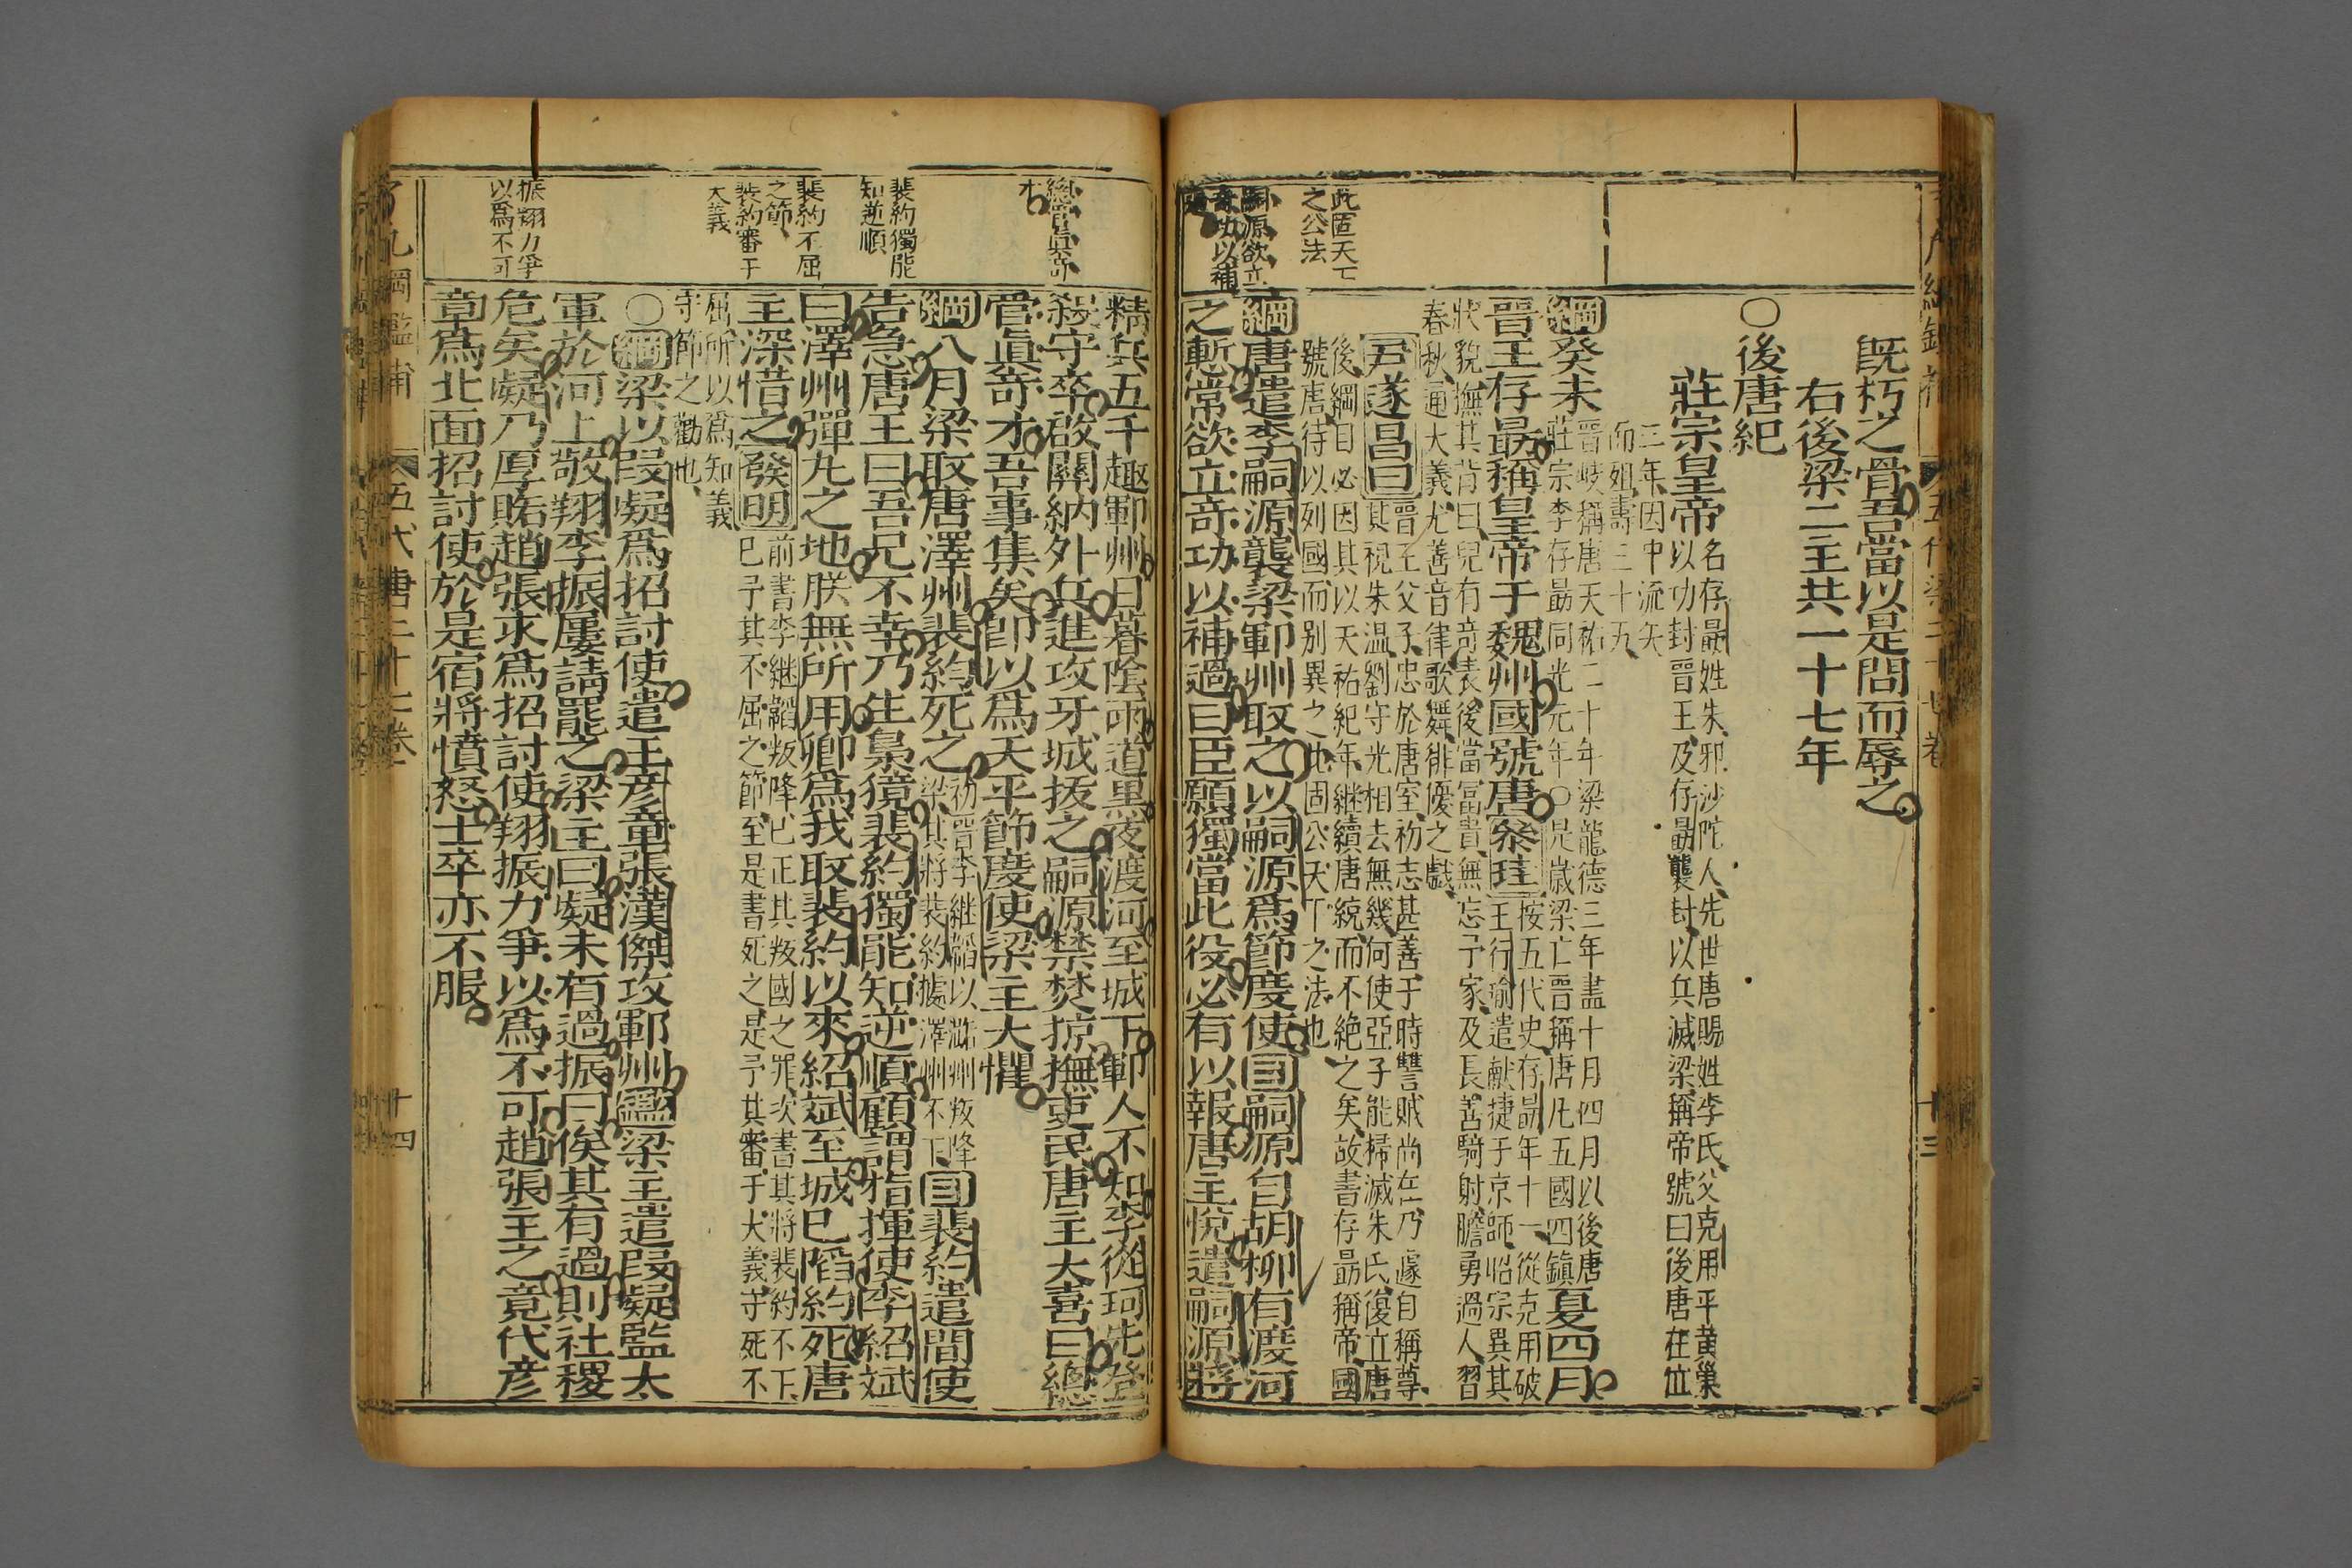 既朽之骨吾當以是問而辱之
右後梁二主共一十七年
○後唐紀
莊宗皇帝
名存朂姓朱邪沙陀人先世唐賜姓李氏父克用平黄巢
以功封晉王及存朂襲封以兵滅梁稱帝號曰後唐在位
三年因中流矢
而殂壽三十五
綱癸未
晉岐稱唐天祐二十年梁龍德三年盡十月四月以後唐
莊宗李存朂同光元年○是歲梁亡晉稱唐凡五國四鎮
夏四月
晉王存朂稱皇帝于魏州國號唐
按五代史存朂年十一從克用破
王行瑜遣献捷于京師昭宗異其
狀貌撫其背曰兒有竒表後當冨貴無忘予家及長善騎射膽勇過人習
春秋通大義尤善音律歌舞徘優之戯
尹遂昌曰
晉王父子忠於唐室初志甚善于時讐賊尚在乃遽自稱尊
其視朱温劉守光相去無幾何使亞子能掃滅朱氏復立唐
後綱目必因其以天祐紀年継續唐統而不絶之矣故書存朂稱帝國
號唐待以列國而别異之此固公天下之法也
綱唐遣李嗣源襲梁鄆州取之以嗣源爲節度使目嗣源自胡柳有渡河
之慙常欲立竒功以補過曰臣願獨當此役必有以報唐主悅遣嗣源將
此固天下
之公法
嗣源欲立
竒功以補
過
精兵五千趣鄆州日暮陰雨道黒夜渡河至城下鄆人不知李從珂先登
殺守卒啟關納外兵進攻牙城拔之嗣源禁焚掠撫吏民唐主大喜曰總
管眞竒才吾事集矣卽以爲天平節度使梁主大懼
綱八月梁取唐澤州裴約死之
初晋李継韜以潞州叛降
梁其將裴約據澤州不下
目裴約遣間使
告急唐王曰吾兄不幸乃生梟獍裴約獨能知逆順顧謂指揮使李紹斌
曰澤州彈丸之地朕無所用卿爲我取裴約以來紹斌至城已陷約死唐
主深惜之
發明
前書李継韜叛降已正其叛國之罪次書其將裴約不下
已予其不屈之節至是書死之是予其審于大義守死不
屈所以爲知義
守節之勸也
○綱梁以段凝爲招討使遣王彦章張漢傑攻鄆州鑑梁主遣段凝監大
軍於河上敬翔李振屢請罷之梁主曰凝未有過振曰俟其有過則社稷
危矣凝乃厚賂趙張求爲招討使翔振力爭以爲不可趙張主之竟代彦
章爲北面招討使於是宿將憤怒士卒亦不服
總管眞竒
才
裴約獨能
知逆順
裴約不屈
之節
裴約審于
大義
振翔力爭
以爲不可
了凡綱鑑補
五代唐二十七卷
十四